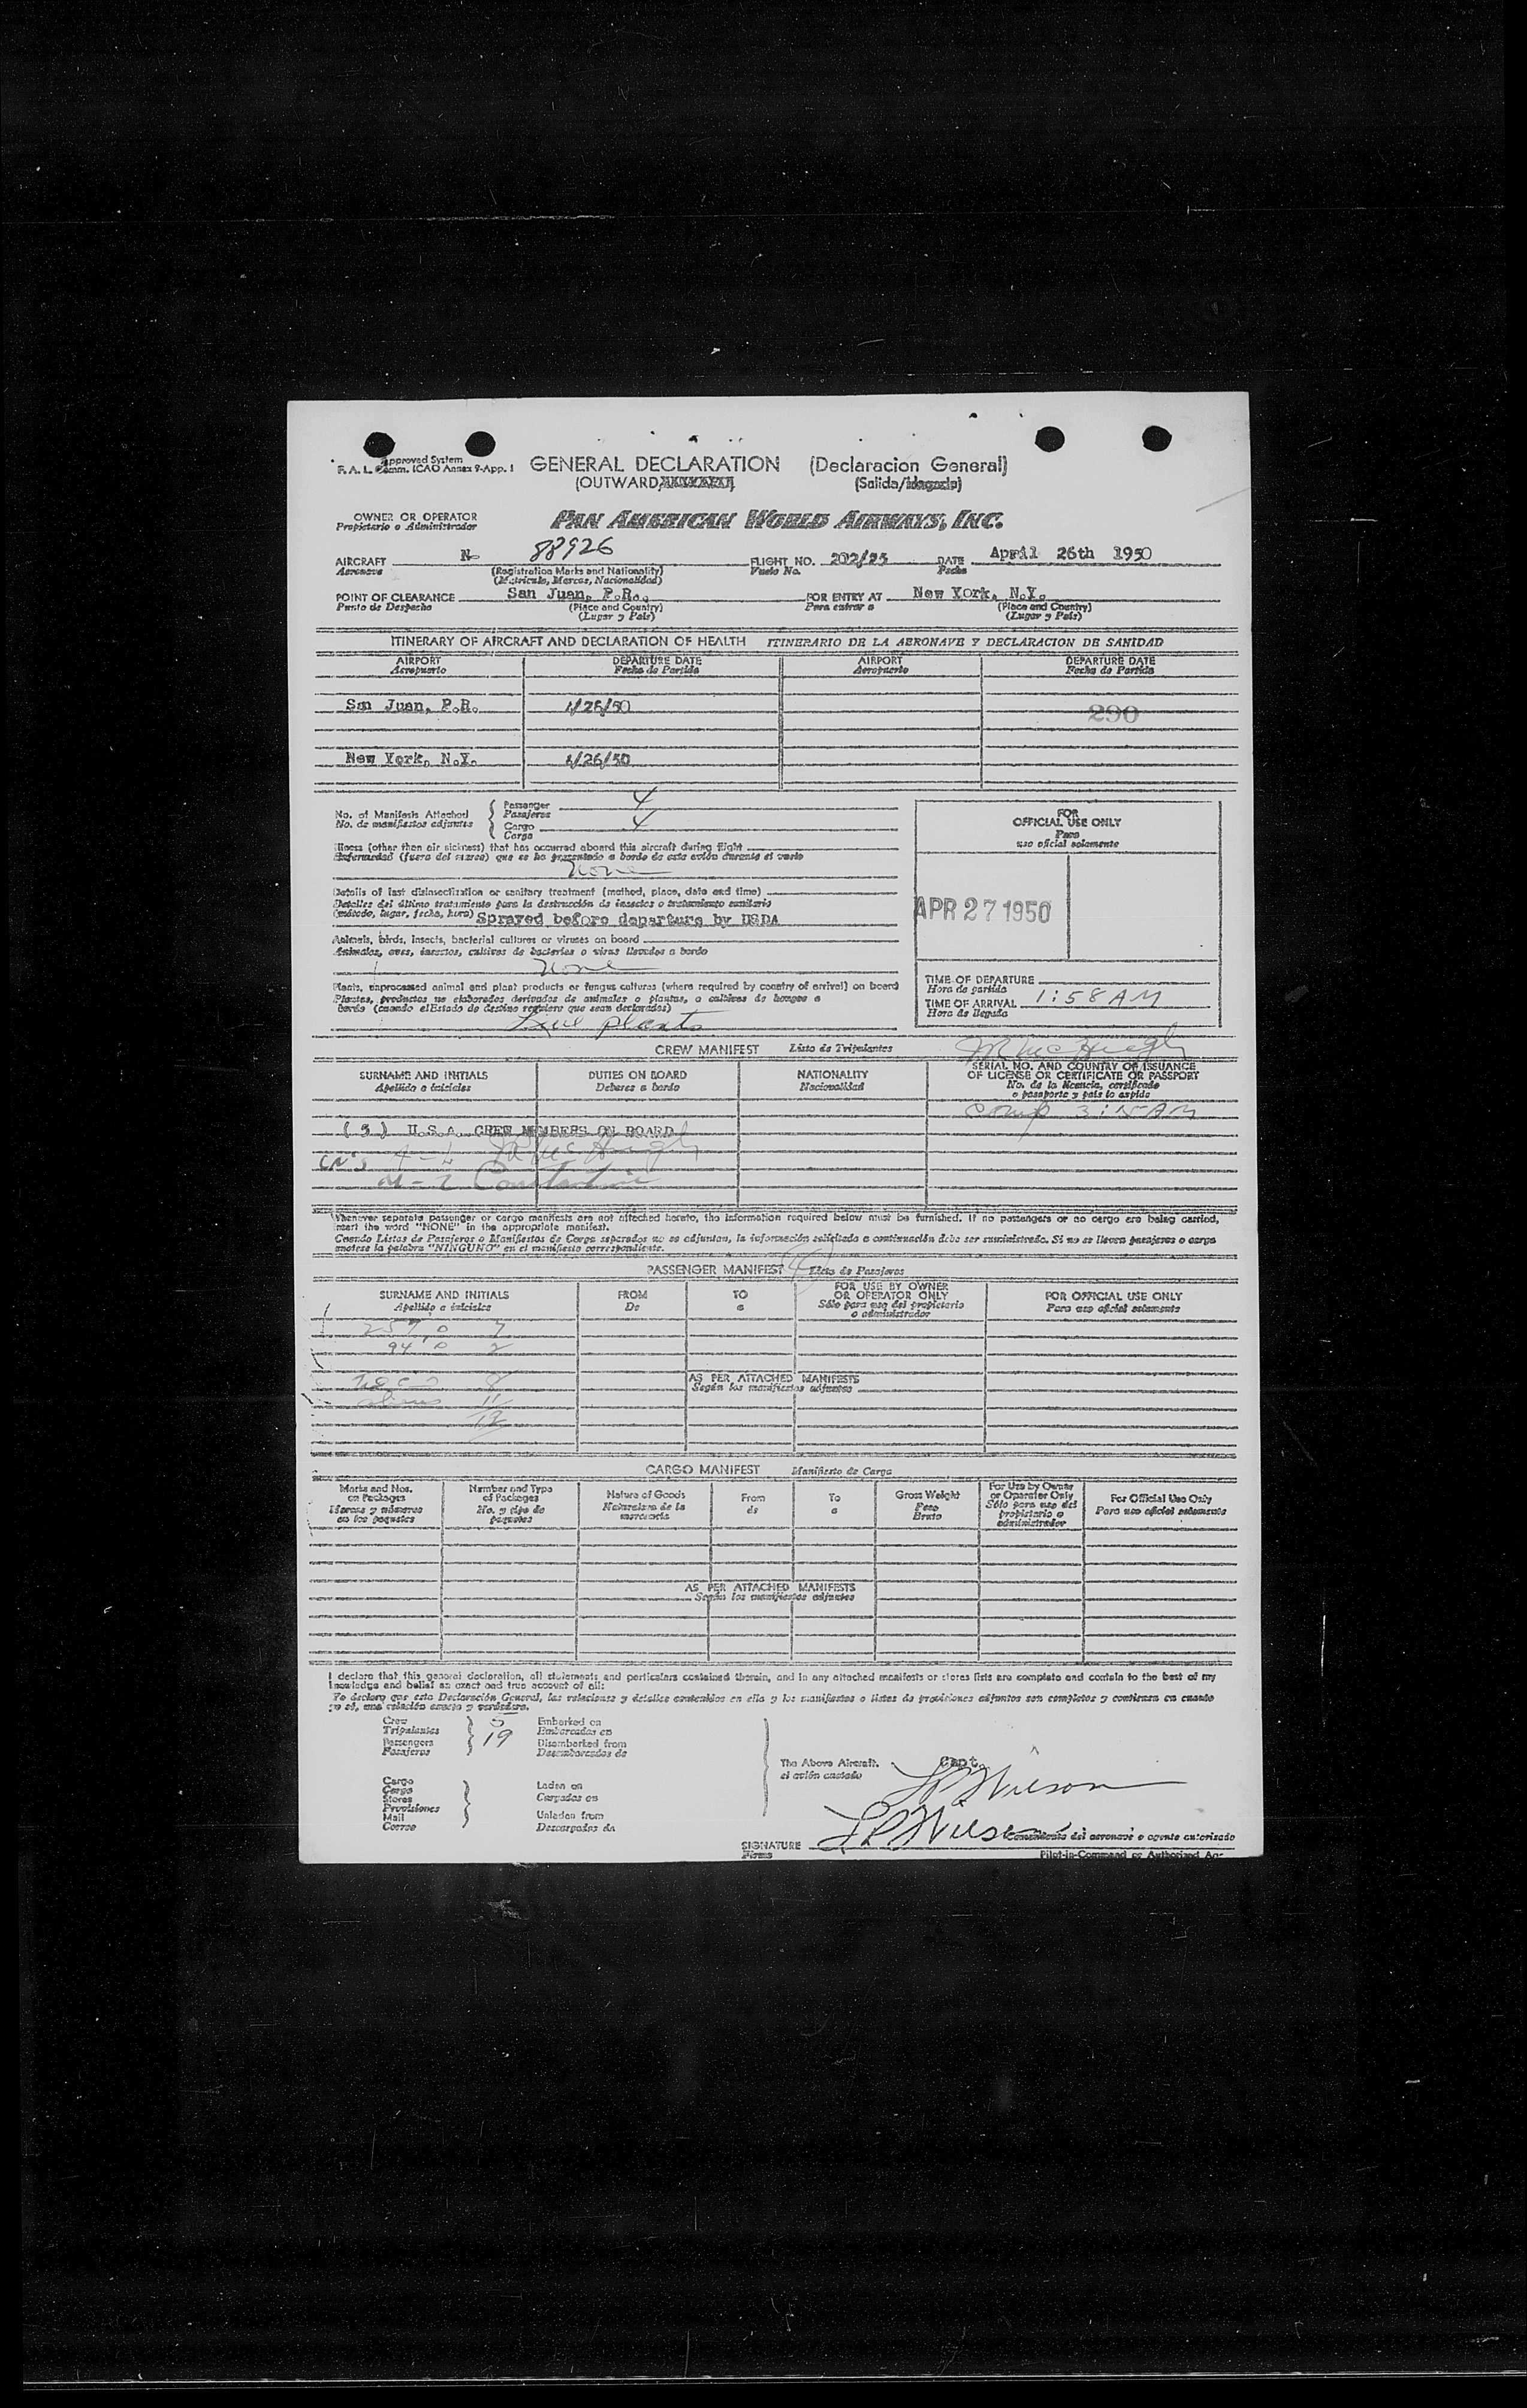 Approved System
F. A. L. Comm. ICAO Annex 9-App. 1
GENERAL DECLARATION (Declaracion General)
(OUTWARD/ (Salida/
OWNER OR OPERATOR
Propietario o Administrador
PAN AMERICAN WORLD AIRWAYS, INC.
AIRCRAFT N- 88926 FLIGHT NO. 202/25 DATE April 26th 1950
Aeronave (Registration Marks and Nationality) Vuelo No. Fecha
(Matricula, Marcas, Nacionalidad)
POINT OF CLEARANCE San Juan, P.R., FOR ENTRY AT New York, N.Y.
Punto de Despacho (Place and Country) Para entrar a (Place and Country)
(Lugar y Pais) (Lugar y Pais)
ITINERARY OF AIRCRAFT AND DECLARATION OF HEALTH ITINERARIO DE LA AERONAVE Y DECLARACION DE SANIDAD
AIRPORT DEPARTURE DATE AIRPORT DEPARTURE DATE
Aeropuerto Fecha de Partida Aeropuerto Fecha de Partida
San Juan, P.R. 4/26/50 290
New York, N.Y. 4/26/50
No. of Manifests Attached
No. de manifiestos adjuntos
Passenger 4
Pasajeros
Cargo 4
Carga
FOR
OFFICIAL USE ONLY
Para
uso oficial solamente
Illness (other than air sickness) that has occurred aboard this aircraft during flight
Enfermedad (fuera del mareo) que se ha presentado a bordo de este avión durante el vuelo
None
Details of last disinsectization or sanitary treatment (method, place, date and time)
Detalles del último tratamiento para la destrucción de insectos o tratamiento sanitario
(método, lugar, fecha, hora) Sprayed before departure by USDA
APR 27 1950
Animals, birds, insects, bacterial cultures or viruses on board
Animales, aves, insectos, cultivos de bacterias o virus llevados a bordo
None
Plants, unprocessed animal and plant products or fungus cultures (where required by country of arrival) on board
Plantas, productos no elaborados derivados de animales o plantas, o cultivos de hongos a
bordo (cuando el Estado de destino requiere que sean declarados)
Live plants
TIME OF DEPARTURE
Hora de partida
TIME OF ARRIVAL 1:58 AM
Hora de llegada
CREW MANIFEST Lista de Tripulantes
SURNAME AND INITIALS DUTIES ON BOARD NATIONALITY SERIAL NO. AND COUNTRY OF ISSUANCE
OF LICENSE OR CERTIFICATE OR PASSPORT
Apellido e iniciales Deberes a bordo Nacionalidad No. de la licencia, certificado
o pasaporte y pais lo expide
comp 3:15 AM
( 5 ) U.S.A. CREW MEMBERS ON BOARD
Whenever separate passenger or cargo manifests are not attached hereto, the information required below must be furnished. If no passengers or no cargo are being carried,
insert the word "NONE" in the appropriate manifest.
Cuando Listas de Pasajeros o Manifiestos de Carga separados no se adjuntan, la información solicitada a continuación debe ser suministrada. Si no se llevan pasajeros o carga
anotese la palabra "NINGUNO" en el manifiesto correspondiente.
PASSENGER MANIFEST Lista de Pasajeros
SURNAME AND INITIALS FROM TO FOR USE BY OWNER
OR OPERATOR ONLY FOR OFFICIAL USE ONLY
Apellido e iniciales De a Sólo para uso del propietario
o administrador Para uso oficial solamente
257 0 7
94 0 2
aliens 11
AS PER ATTACHED MANIFESTS
Según los manifiestos adjuntos
CARGO MANIFEST Manifiesto de Carga
Marks and Nos.
on Packages
Marcas y números
en los paquetes
Number and Type
of Packages
No. y tipo de
paquetes
Nature of Goods
Naturaleza de la
mercancia
From
de
To
a
Gross Weight
Peso
Bruto
For Use by Owner
or Operator Only
Sólo para uso del
propietario o
administrador
For Official Use Only
Para uso oficial solamente
AS PER ATTACHED MANIFESTS
Según los manifiestos adjuntos
I declare that this general declaration, all statements and particulars contained therein, and in any attached manifests or stores lists are complete and contain to the best of my
knowledge and belief an exact and true account of all:
Yo declaro que esta Declaración General, las relaciones y detalles contenidos en ella y los manifiestos o listas de provisiones adjuntos son completos y contienen en cuanto
yo sé, una relación exacta y verdadera.
Crew 5 Embarked on
Tripulantes Embarcados en
Passengers 19 Disembarked from
Pasajeros Desembarcados de
Cargo
Carga
Stores
Provisiones
Mail
Correo
Laden on
Cargados en
Unladen from
Descargados de
The Above Aircraft.
el avión anotado
Capt.
LP Wilson
SIGNATURE LP Wilson
Firma
Comandante del aeronave o agente autorizado
Pilot-in-Command or Authorized Ag-